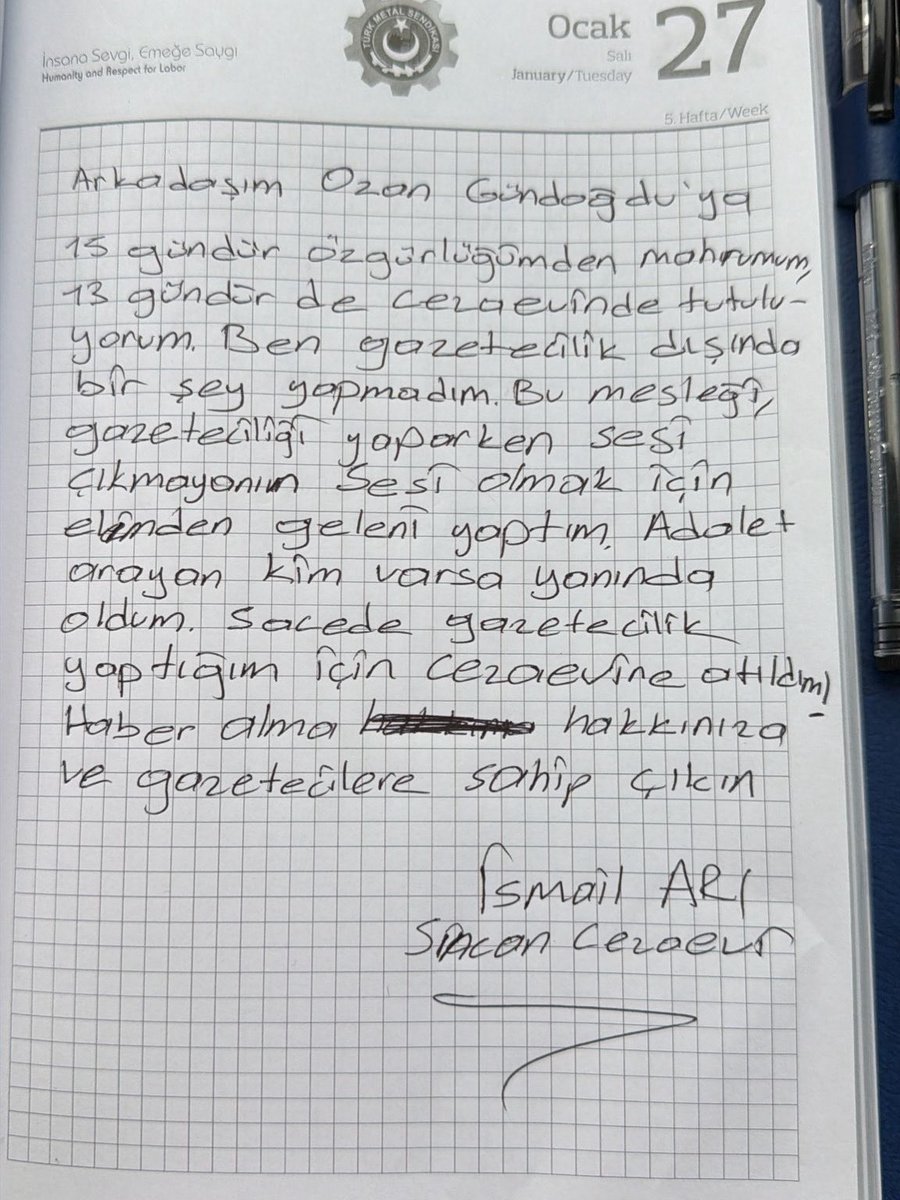 İnsana Sevgi, Emeğe Saygı
Humanity and Respect for Labor
TÜRK METAL SENDİKASI
Ocak
Salı
January/Tuesday
27
5. Hafta/Week
Arkadaşım Ozan Gündoğdu'ya
15 gündür özgürlüğümden mahrumum,
13 gündür de cezaevinde tutulu-
yorum. Ben gazetecilik dışında
bir şey yapmadım. Bu mesleği,
gazeteciliği yaparken sesi
çıkmayanın sesi olmak için
elimden geleni yaptım. Adalet
arayan kim varsa yanında
oldum. Sacede gazetecilik
yaptığım için cezaevine atıldım!
Haber alma hakkınıza
ve gazetecilere sahip çıkın
İsmail ARI
Sincan Cezaevi